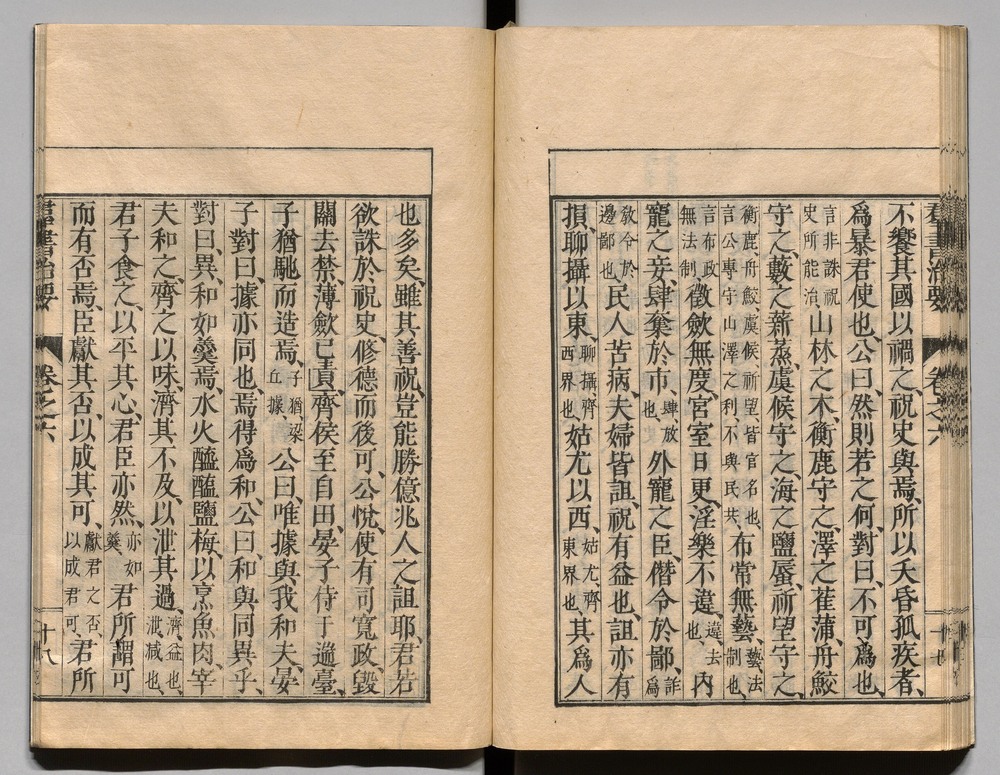 不饗其國以禍之、祝史與焉、所以夭昏孤疾者、
爲暴君使也、公曰、然則若之何、對曰、不可爲也、
言非誅祝史所能治、山林之木、衡鹿守之、澤之萑蒲、舟鮫
守之、藪之薪蒸、虞候守之、海之鹽蜃、祈望守之、
衡鹿舟鮫、虞候、祈望皆官名也、言公專守山澤之利、不與民共、布常無藝、藝、法制也、
言布政無法制、徵歛無度、宮室日更、淫樂不違、違、去也、內
寵之妾、肆奪於市、肆、放也、外寵之臣、僭令於鄙、詐爲
敎令於邊鄙也、民人苦病、夫婦皆詛、祝有益也、詛亦有
損、聊攝以東、聊攝、齊西界也、姑尤以西、姑尤、齊東界也、其爲人
羣書治要
卷之六
十七
也多矣、雖其善祝、豈能勝億兆人之詛耶、君若
欲誅於祝史、脩德而後可、公悅、使有司寬政、毀
關去禁、薄歛已責、齊侯至自田、晏子侍于遄臺、
子猶馳而造焉、子猶、梁丘據、公曰、唯據與我和夫、晏
子對曰、據亦同也、焉得爲和、公曰、和與同異乎、
對曰、異、和如羹焉、水火醯醢鹽梅、以烹魚肉、宰
夫和之、齊之以味、濟其不及、以泄其過、濟、益也、泄、減也、
君子食之、以平其心、君臣亦然、亦如羹、君所謂可
而有否焉、臣獻其否、以成其可、獻君之否、以成君可、君所
羣書治要
卷之六
十八